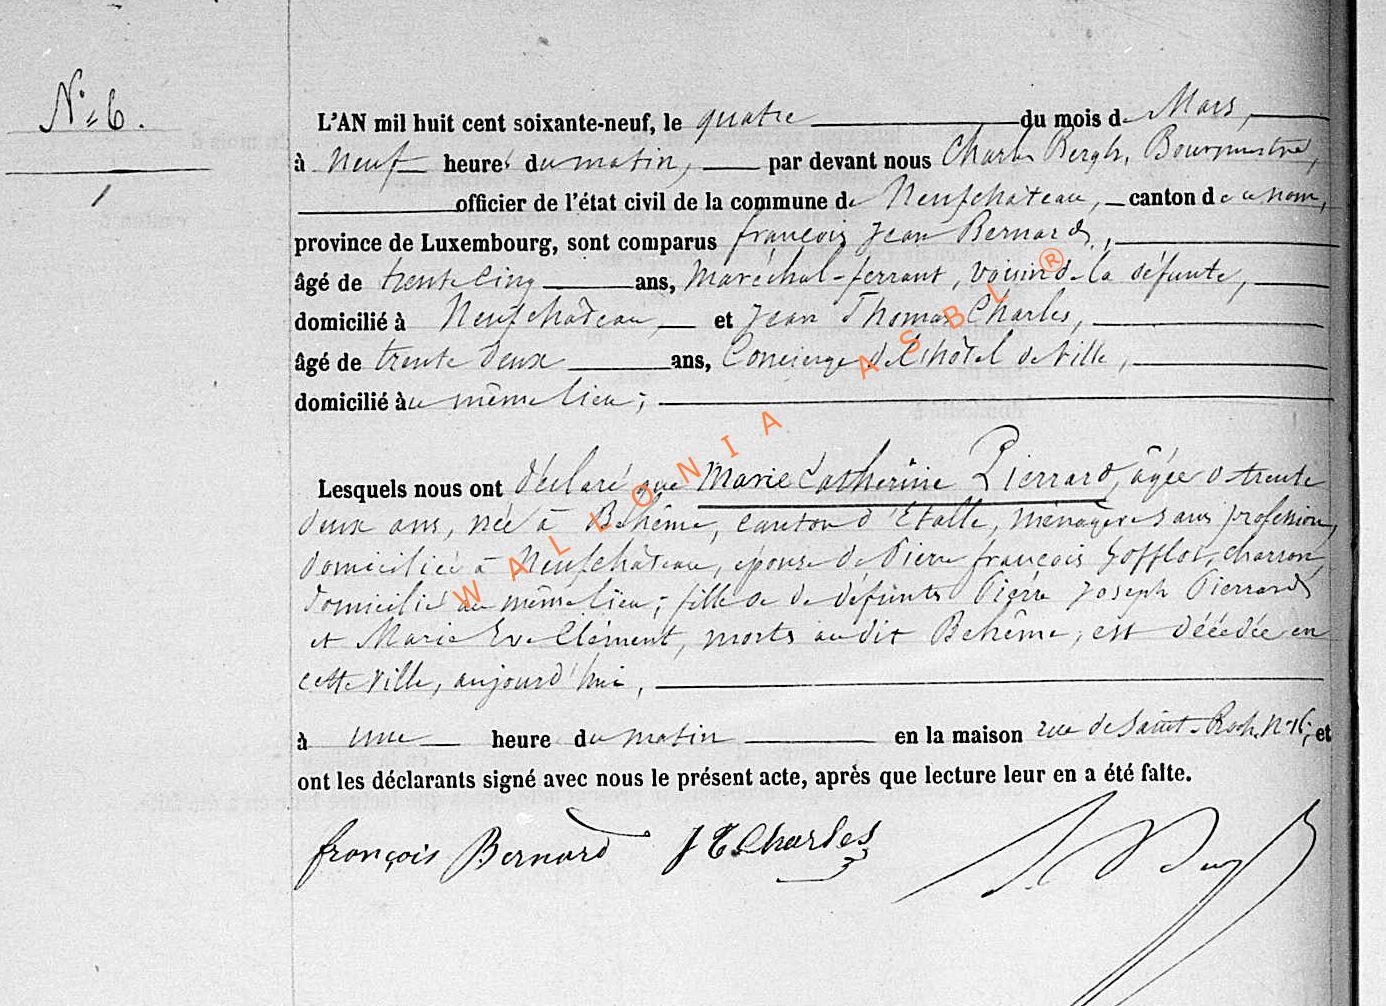 N° 6.
L'AN mil huit cent soixante-neuf, le quatre du mois de Mars,
à neuf heures du matin, par devant nous Charles Bergh, Bourgmestre,
officier de l'état civil de la commune de Neufchâteau, canton de ce nom,
province de Luxembourg, sont comparus françois Jean Bernard,
âgé de trente cinq ans, Maréchal-ferrant, voisin de la défunte,
domicilié à Neufchâteau, et Jean Thomas Charles,
âgé de trente deux ans, Concierge de l'hôtel de Ville,
domicilié au même lieu;
Lesquels nous ont déclaré que Marie Catherine Pierrard, âgée de trente
deux ans, née à Behême, canton d'Etalle, ménagère sans profession,
domiciliée à Neufchâteau, épouse de Pierre françois Gofflot, charron,
domicilié au même lieu; fille de défunts Pierre Joseph Pierrard
et Marie Eve Clément, morts audit Behême, est décédée en
cette Ville, aujourd'hui,
à une heure du matin en la maison rue de Saint-Roch, n° 16; et
ont les déclarants signé avec nous le présent acte, après que lecture leur en a été faite.
françois Bernard J T Charles
WALLONIA ASBL ®